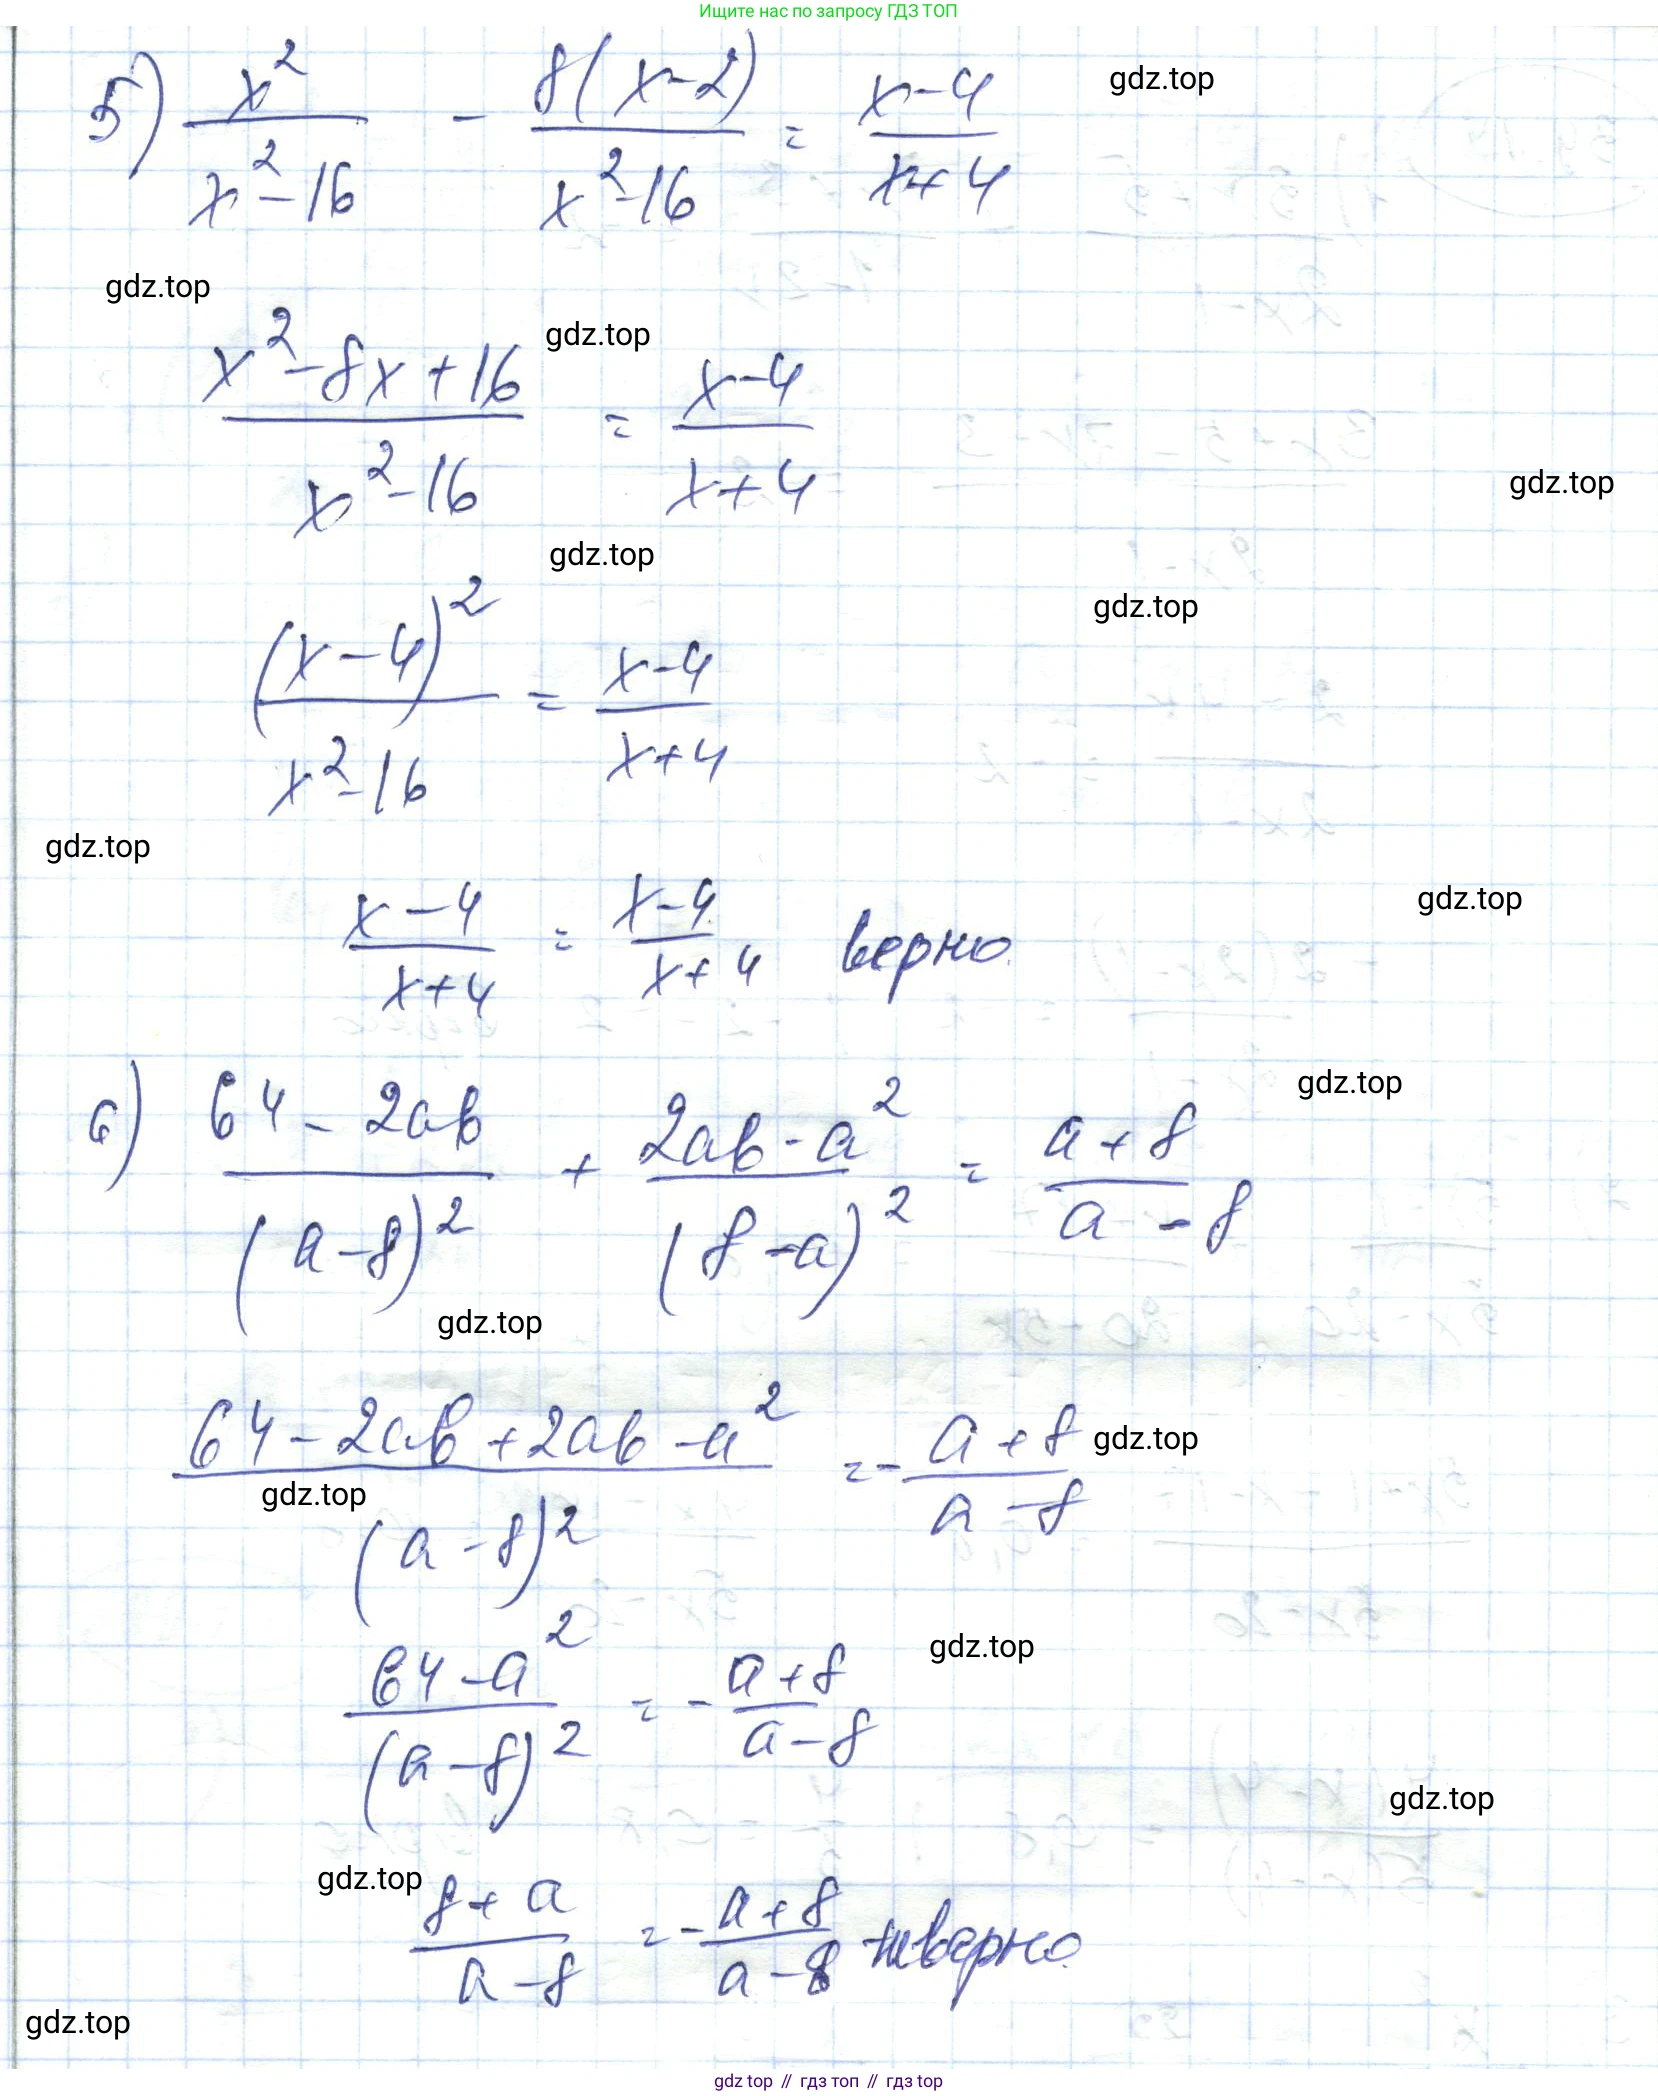 Ищите нас по запросу ГДЗ ТОП
5) x²/(x²-16) - 8(x-2)/(x²-16) = (x-4)/(x+4)
gdz.top
gdz.top
gdz.top
(x²-8x+16)/(x²-16) = (x-4)/(x+4)
gdz.top
gdz.top
gdz.top
(x-4)²/(x²-16) = (x-4)/(x+4)
gdz.top
gdz.top
(x-4)/(x+4) = (x-4)/(x+4) верно.
gdz.top
6) (64-2ab)/(a-8)² + (2ab-a²)/(8-a)² = (a+8)/(a-8)
gdz.top
(64-2ab+2ab-a²)/(a-8)² = -(a+8)/(a-8)
gdz.top
gdz.top
(64-a²)/(a-8)² = -(a+8)/(a-8)
gdz.top
gdz.top
gdz.top
(8+a)/(a-8) = -(a+8)/(a-8)
gdz.top
gdz top // гдз топ // гдз top